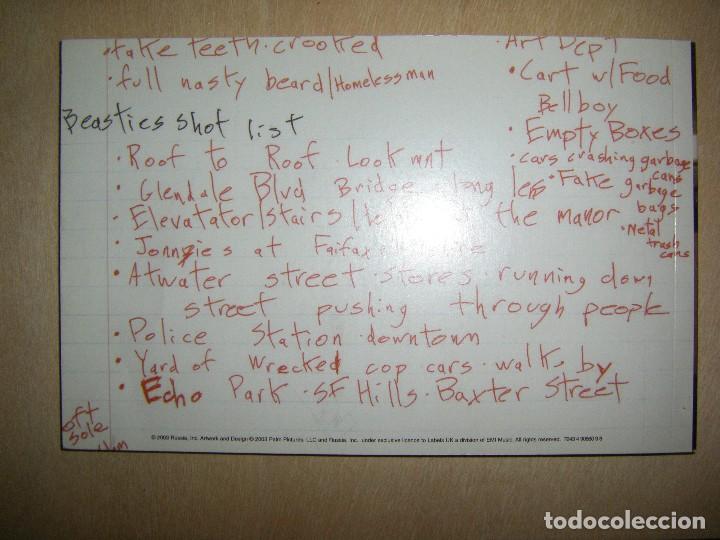 take teeth · crooked
· full nasty beard/Homeless man
Beasties shot list
· Roof to Roof · Look mnt
· Glendale Blvd Bridge · long lens
· Elevatator/stairs/ the manor
· at Fairfax
· Atwater street · stores · running down
street pushing through people
· Police Station downtown
· Yard of wrecked cop cars · walk by
· Echo Park · SF Hills · Baxter Street
Art Dept
· Cart w/ Food
Bellboy
· Empty Boxes
· cars crashing garbage
cans
· Fake garbage
bags
· Metal
trash
cans
sole
© 2003 Palm Pictures, LLC and Russia, Inc. under exclusive licence to Labels UK a division of EMI Music. All rights reserved.
todocoleccion